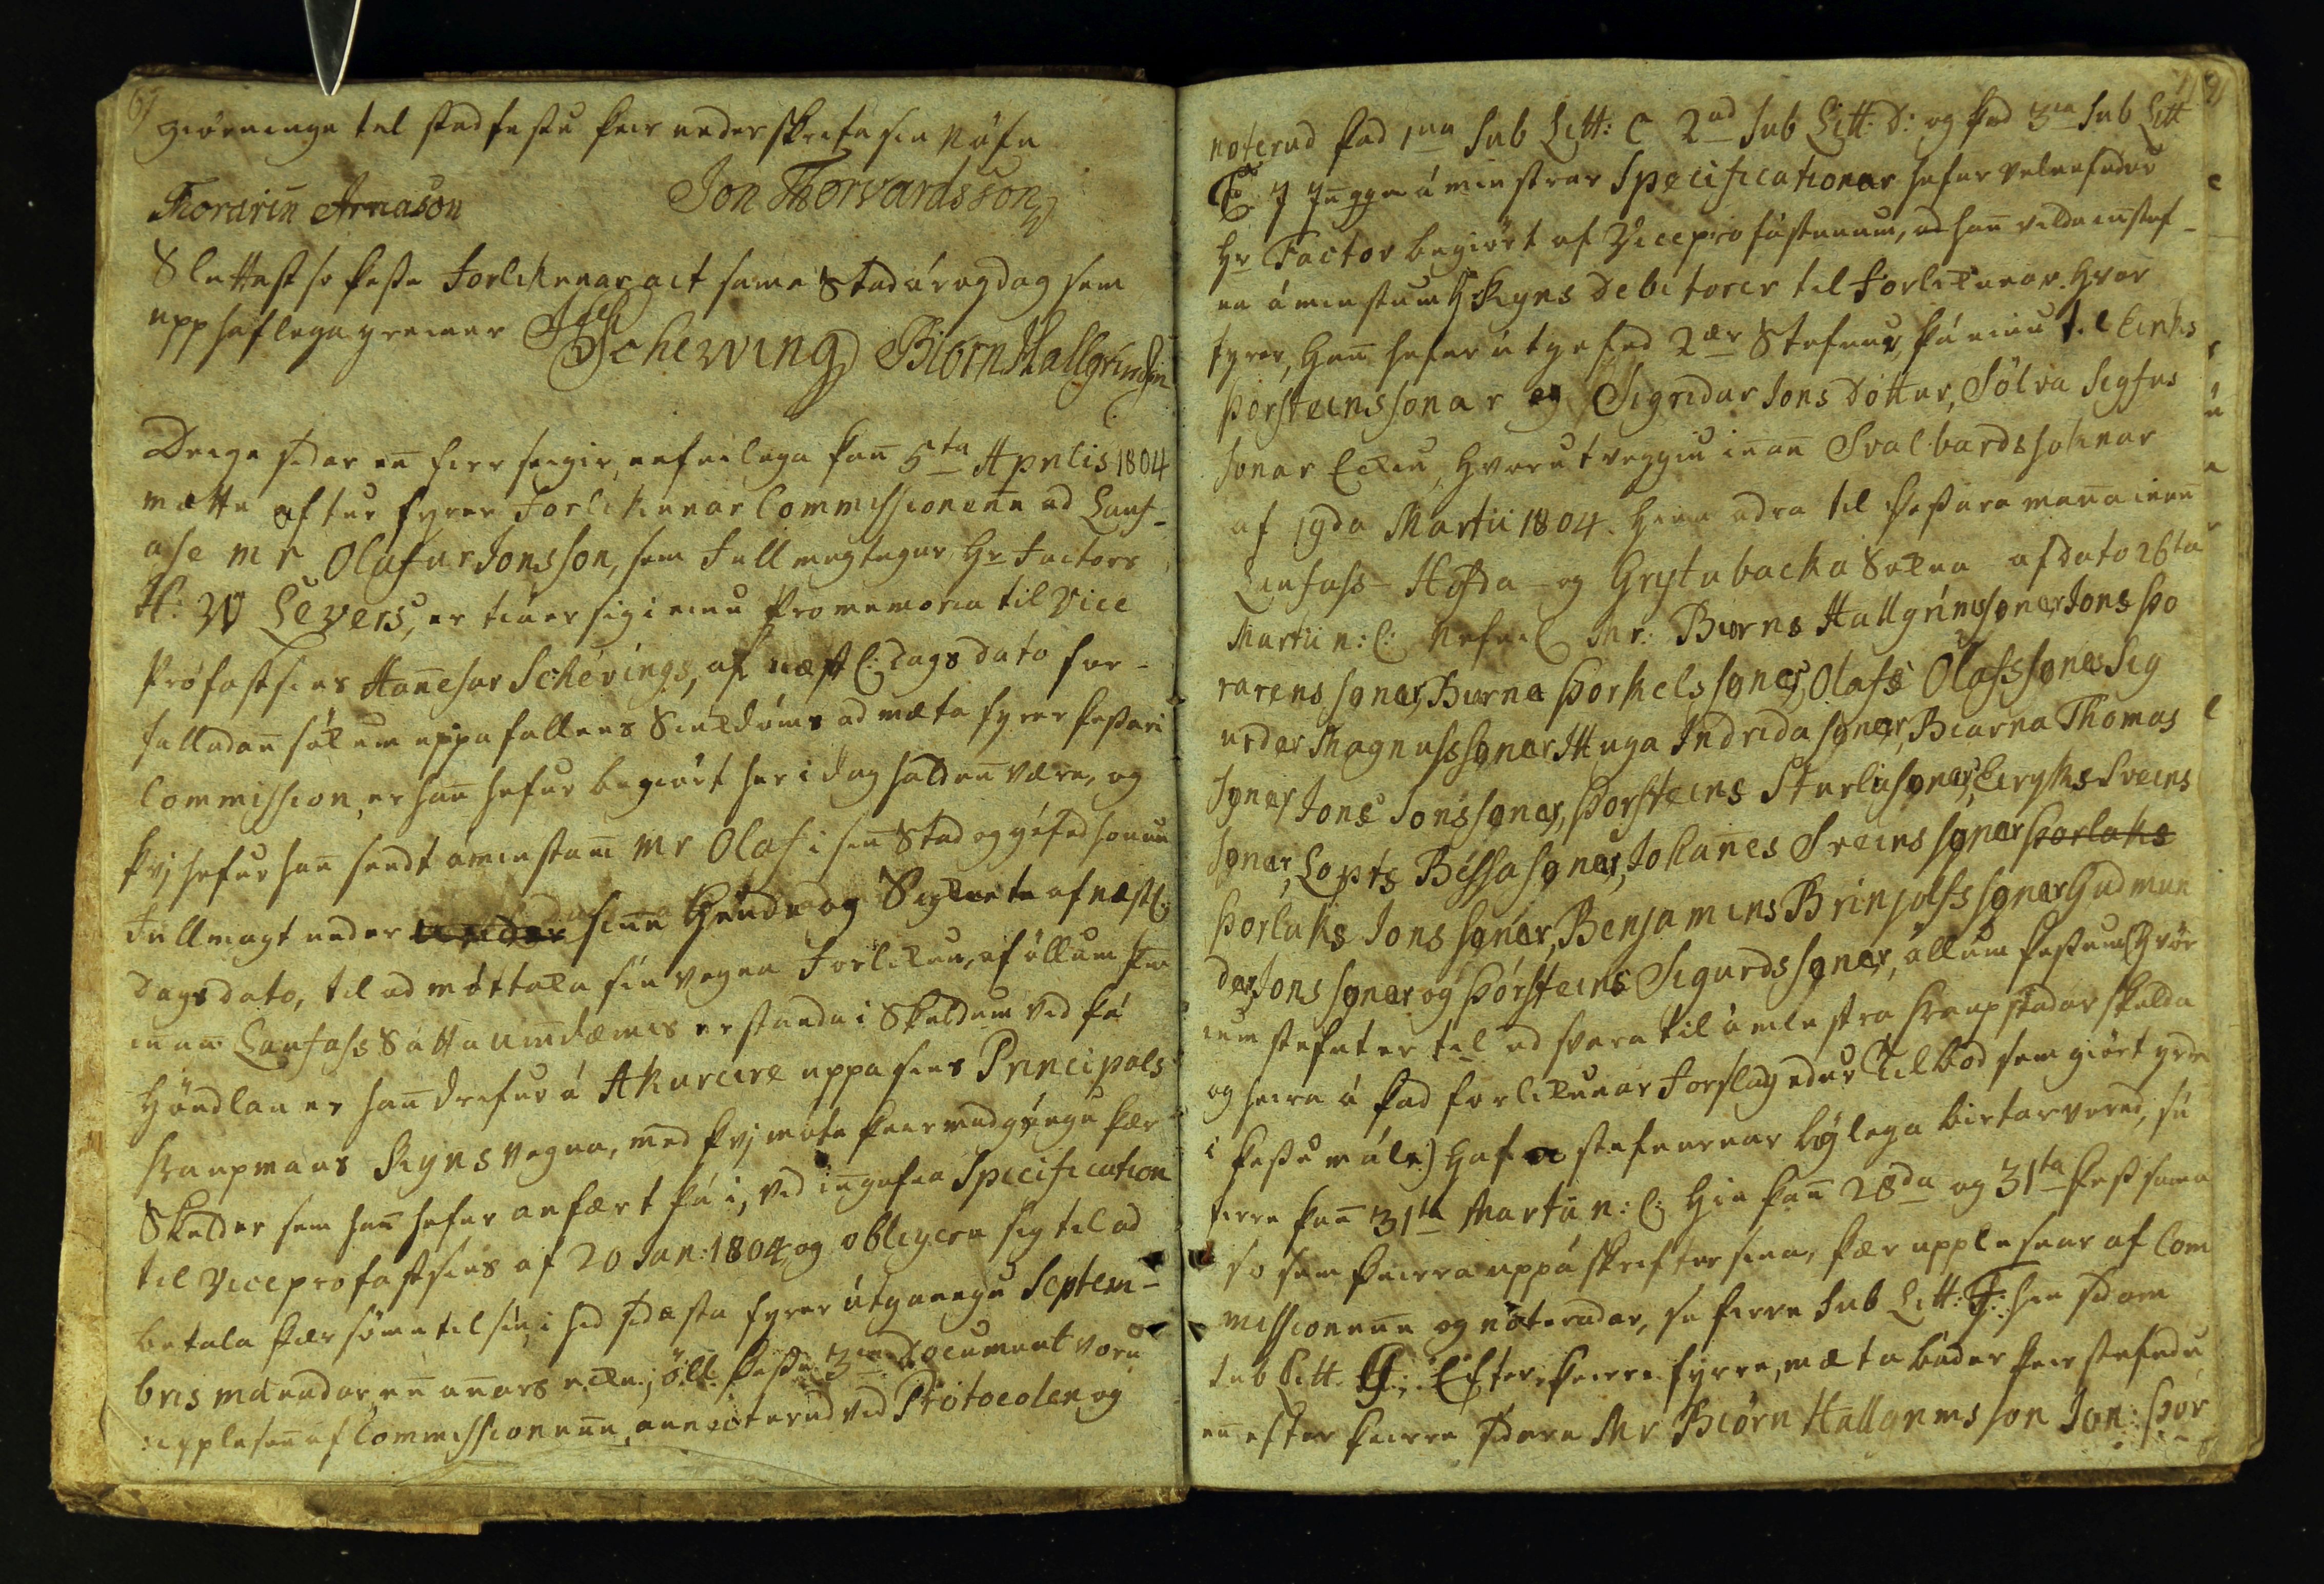 6)
giörninga til stadfestu þeir underskrifa sin Nöfn
Thorarin Arnason Jon Thorvardsson
Sluttast so þesse Forliknar act sama Stad ár og dag sem
upphaflega greiner HSchewing BiörnHallgrimsson
Deige sidar en firr seigir, nefnilega þan 5ta Aprilis 1804
mætte aftur fyrer Forliknar Commissionenn ad Lauf-
ase mr Olafur Jonsson, sem Fullmegtugur Hr Factors
H: W Levers, er tiáer sig i einu Promemoria til Vice
Prófastsins Hanesar Schévings, af næstl: dags dato for-
falladan sökum uppafallens Siukdóms ad mæta fyrer þessari
Commission, er han hefur begiört her i dag halden være, og
þvi hefur han sendt ámenstan mr Olaf i sin Stad og géfed honum
Fullmagt under sinne Hende og Signete af næstl:
dags dato, til ad móttaka sin vegna Forlikun, af öllum þeim
innan Laufass Sátta umdæmis er standa i Skuldum vid þá
Höndlan er han drifur á Akureire uppa sins Principals
Kaupmans Kyns vegna, med þvi móte þeir medgángu þær
Skulder sem han hefur anfært þá i, vid ingefna Specification
til Viceprofastsins af 20 Jan: 1804, og obligera sig til ad
betala þær sömu til sin, i hid sidasta fyrer útgaungu Septem-
bris mánadar, en anars ecke; öll þesse 3iu Document voru
upplesen af Commissionenn, annoterud vid Protocolen og
7)
noterud þad 1ma Sub Litt: C 2ad Sub Litt: D: og þad 3ia Sub Litt
E. I Ingan ámenstrar Specificationar hefur velnefndur
Hr Factor begiört af Viceprofástenum, ad han vilde instef-
na ámenstum Kyns Debitorer til Forlikunar. Hvar
fyrer, Han hefur útgefed 2ær Stefnur, þá einu til Eiriks
Þorsteinssonar og Sigridar Jons Dóttur, Sölva Sigfus
sonar Eckiu, Hvorutveggiu innan Svalbardssoknar
af 19da Martii 1804. Hina adra til þessara mana innan
Laufass- Hofda- og Grytubacka Sokna af dato 26ta
Martii n: l: Nefnil Mr: Biorns Hallgrimssonar Jons Þo
rarens sonar, Biorns Þorkels sonar, Olafs Olafssonar Sig
urdar Magnussonar Illuga Indrida sonar, Biarna Thomas
sonar Jons Jonssonar, Þorsteins Sturlusonar, Eiryks Sveins
sonar, Lopts Bessasonar, Johanes Sveins sonar Þorlaks
Þorlaks Jons sonar, Benjamins Brinjolfssonar Gudmun
dar Jons sonar og Þórsteins Sigurdssonar, ollum þessum Hvör
ium stefnt er til ad svara til ámenstra Kaupstadar skulda
og heira á þad forlikunar Forslag edur Tilbod sem giört yrde
i þessu mále) Hafa stefnurnar löglega birtar vered, sú
firre þan 31ta Martii n: l: Hin þan 28da og 31ta þess sama
so sem þeirra uppáskrifter sina, þær upplesnar af Com
missionenn og nóterader, sú firre Sub Litt: F: hin sidare
Sub Litt. G: Efter þeirre fyrre, mæta báder þeir stefndu
en efter þeirre sidare Mr Biörn Hallgrimsson Jon: Þór